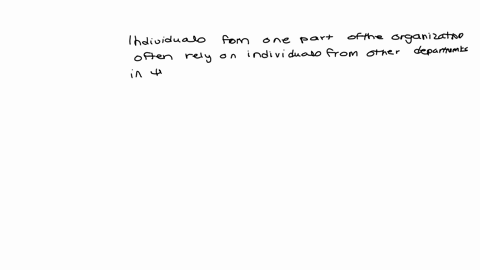 Individuals fom one part of the organization
often rely on individuals from other departments
in